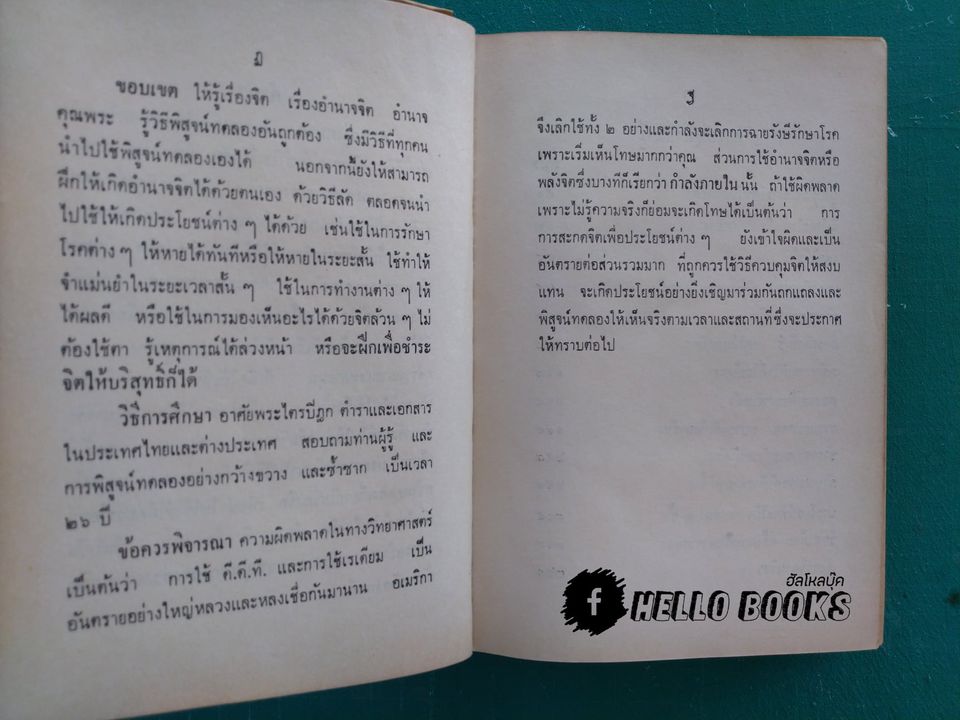 ฏ
ขอบเขต ให้รู้เรื่องจิต เรื่องอำนาจจิต อำนาจ
คุณพระ รู้วิธีพิสูจน์ทดลองอันถูกต้อง ซึ่งมีวิธีที่ทุกคน
นำไปใช้พิสูจน์ทดลองเองได้ นอกจากนี้ยังให้สามารถ
ฝึกให้เกิดอำนาจจิตได้ด้วยตนเอง ด้วยวิธีลัด ตลอดจนนำ
ไปใช้ให้เกิดประโยชน์ต่าง ๆ ได้ด้วย เช่นใช้ในการรักษา
โรคต่าง ๆ ให้หายได้ทันทีหรือให้หายในระยะสั้น ใช้ทำให้
จำแม่นยำในระยะเวลาสั้น ๆ ใช้ในการทำงานต่าง ๆ ให้
ได้ผลดี หรือใช้ในการมองเห็นอะไรได้ด้วยจิตล้วน ๆ ไม่
ต้องใช้ตา รู้เหตุการณ์ได้ล่วงหน้า หรือจะฝึกเพื่อชำระ
จิตให้บริสุทธิ์ก็ได้
วิธีการศึกษา อาศัยพระไตรปิฎก ตำราและเอกสาร
ในประเทศไทยและต่างประเทศ สอบถามท่านผู้รู้ และ
การพิสูจน์ทดลองอย่างกว้างขวาง และซ้ำซาก เป็นเวลา
๒๖ ปี
ข้อควรพิจารณา ความผิดพลาดในทางวิทยาศาสตร์
เป็นต้นว่า การใช้ ดี.ดี.ที. และการใช้เรเดียม เป็น
อันตรายอย่างใหญ่หลวงและหลงเชื่อกันมานาน อเมริกา
ฐ
จึงเลิกใช้ทั้ง ๒ อย่างและกำลังจะเลิกการฉายรังษีรักษาโรค
เพราะเริ่มเห็นโทษมากกว่าคุณ ส่วนการใช้อำนาจจิตหรือ
พลังจิตซึ่งบางทีก็เรียกว่า กำลังภายใน นั้น ถ้าใช้ผิดพลาด
เพราะไม่รู้ความจริงก็ย่อมจะเกิดโทษได้เป็นต้นว่า การ
การสะกดจิตเพื่อประโยชน์ต่าง ๆ ยังเข้าใจผิดและเป็น
อันตรายต่อส่วนรวมมาก ที่ถูกควรใช้วิธีควบคุมจิตให้สงบ
แทน จะเกิดประโยชน์อย่างยิ่งเชิญมาร่วมกันถกแถลงและ
พิสูจน์ทดลองให้เห็นจริงตามเวลาและสถานที่ซึ่งจะประกาศ
ให้ทราบต่อไป
ฮัลโหลบุ๊ค
f HELLO BOOKS